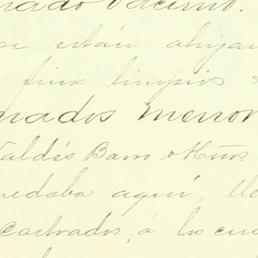 nado vacuno.
se están ahijan
fino limpios
nados menor
Valdés Barro
uedaba aquí, lle
castrados, á los cua